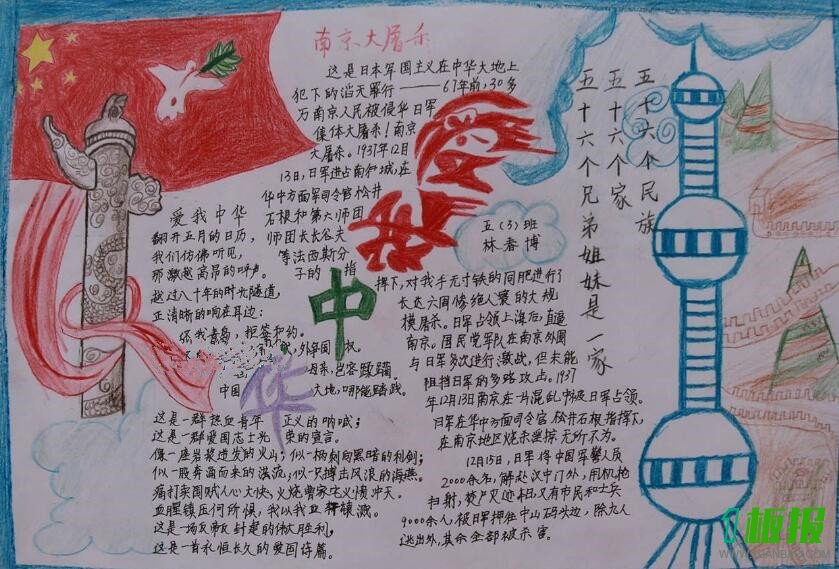 南京大屠杀
这是日本军国主义在中华大地上
犯下的滔天罪行——67年前,30多
万南京人民被侵华日军
集体大屠杀!南京
大屠杀。1937年12月
13日,日军进占南和城,在
华中方面军司令官松井
石根和第六师团
师团长长谷夫
等法西斯分
子的指
挥下,对我手无寸铁的同胞进行了
长达六周惨绝人寰的大规
模屠杀。日军占领上海后,直逼
南京。国民党军队在南京外围
与日军多次进行激战,但未能
阻挡日军的多路攻击。1937
年12月13日南京在一片混乱中被日军占领。
日军在华中方面司令官松井石根指挥下,
在南京地区烧杀淫掠无所不为。
12月15日,日军将中国军警人员
2000余名,解赴汉中门外,用机枪
扫射,焚尸灭迹本日又有市民和士兵
9000余人,被日军押往中山码头边,除九人
逃出外,其余全部被杀害。
爱我中华
翻开五月的日历,
我们仿佛听见,
那激越高昂的呼声。
越过八十年的时光隧道,
正清晰的响在耳边:
还我青岛,拒签和约。
外争国权。
中国大地,哪能踏践。
这是一群热血青年正义的呐喊;
这是一群爱国志士光荣的宣言。
像一座岩浆迸发的火山;似一柄刺向黑暗的利剑;
似一股奔涌而来的洪流;似一只搏击风浪的海燕。
痛打卖国贼人心大快,火烧曹家宅义愤冲天。
血腥镇压何所惧,我以我血
这是一场反帝反封建的伟大胜利,
这是一首永恒长久的爱国诗篇。
中华
五(3)班
林春博
五十六个民族
五十六个家
五十六个兄弟姐妹是一家
板报